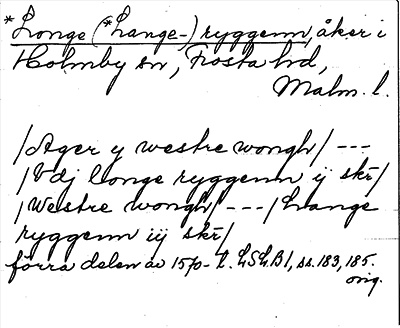 *Longe (*Lange-) ryggenn, åker i
Holmby sn, Frosta hd,
Malm. l.
/Ager y westre wongh/ ---
/Vdj longe ryggenn ij skr/
/Westre wongh/ ---/ Lange
ryggenn iij skr/
förra delen av 1570-t. LSLB1, ss. 183, 185.
orig.